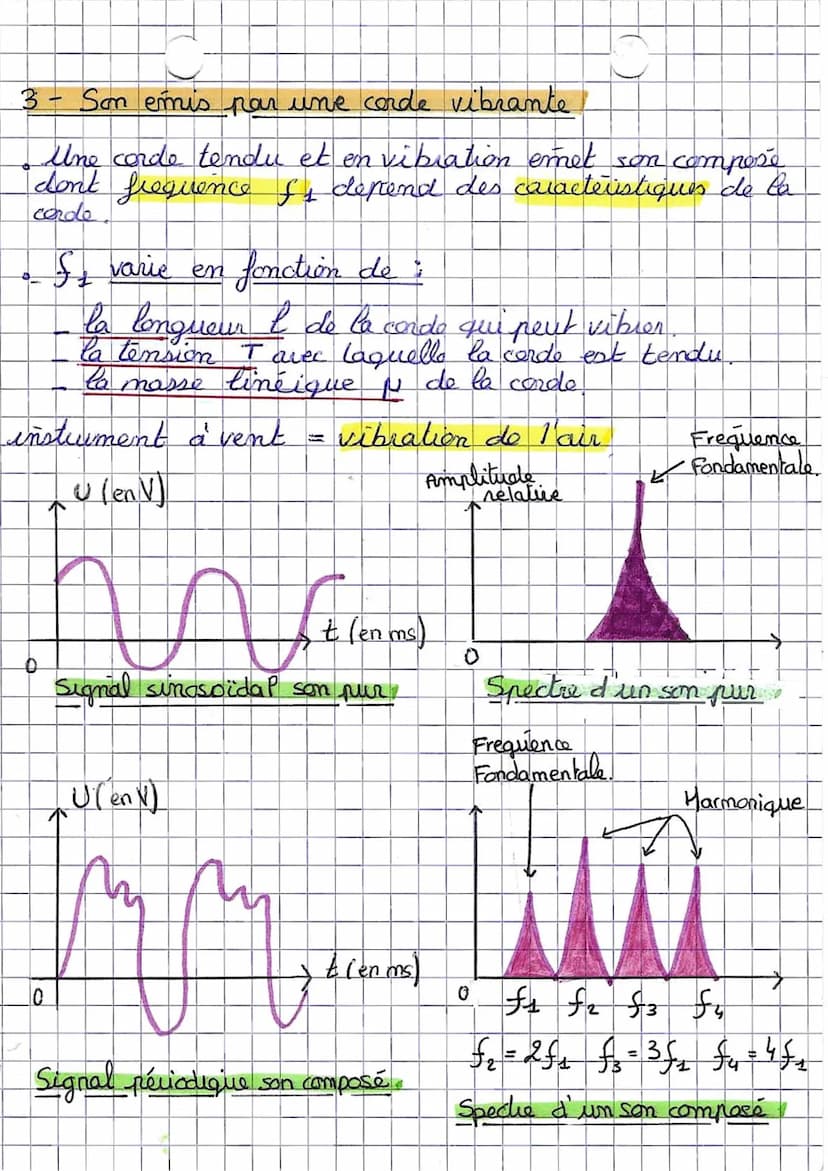 3 - Son émis par une corde vibrante
. Une corde tendu et en vibration émet son composé
dont frequence f1 depend des caractéristiques de la
corde.
. f1 varie en fonction de :
- la longueur l de la corde qui peut vibrer.
- la tension T avec laquelle la corde est tendu.
- la masse linéique μ de la corde.
instrument à vent = vibration de l'air
Frequence
Fondamentale.
U (en V)
Amplitude
relative
t (en ms)
0
0
Signal sinosoïdal son pur
Spectre d'un son pur
Frequence
Fondamentale.
U (en V)
Harmonique
t (en ms)
0
0
f1 f2 f3 f4
f2 = 2f1 f3 = 3f1 f4 = 4f1
Signal périodique son composé.
Spectre d'un son composé